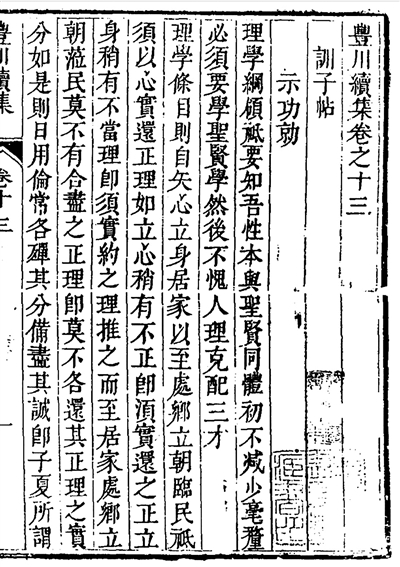 豐川續集卷之十三
訓子帖
示功勍
理學綱領祗要知吾性本與聖賢同體初不減少毫釐
必須要學聖賢學然後不愧人理克配三才
理學條目則自矢心立身居家以至處鄉立朝臨民祗
須以心實還正理如立心稍有不正卽須實還之正立
身稍有不當理卽須實約之理推之而至居家處鄉立
朝蒞民莫不有合盡之正理卽莫不各還其正理之實
分如是則日用倫常各殫其分備盡其誠卽子夏所謂
豐川續集
卷十三
一